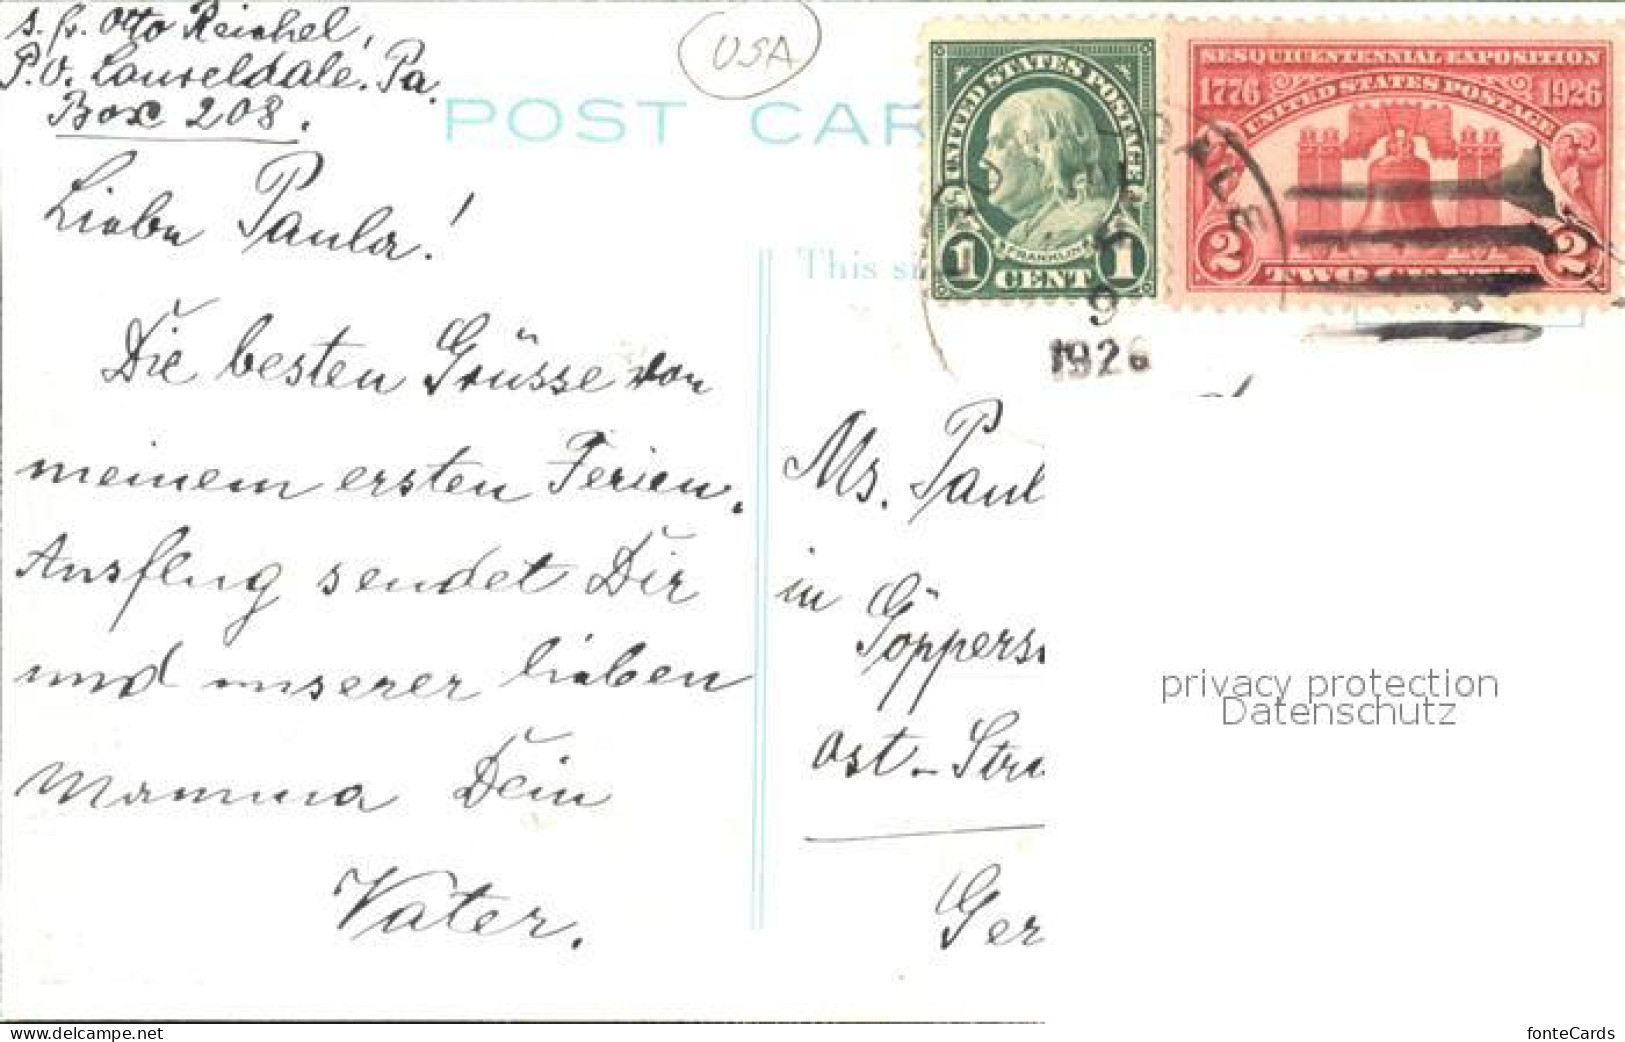 Otto Reichel,
P.O. Laureldale. Pa.
Box 208.
USA
POST CAR
Liebe Paula!
Die besten Grüsse von
meinem ersten Ferien.
Ausflug sendet Dir
und unserer lieben
Mamma Dein
Vater.
This s
UNITED STATES POSTAGE
FRANKLIN
1 CENT 1
SESQUICENTENNIAL EXPOSITION
1776 UNITED STATES POSTAGE 1926
2 TWO CENTS 2
9
1926
Ms. Paul
in
Göppers
Ost-Stra
Ger
privacy protection
Datenschutz
www.delcampe.net
fonteCards